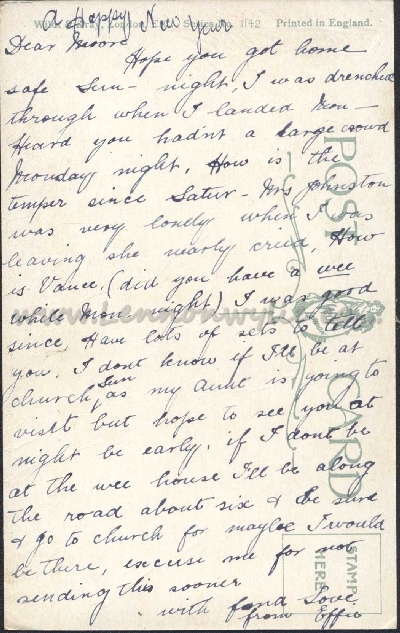 A Happy New Year
Printed in England.
Dear Moore
Hope you got home
safe Sun- night, I was drenched
through when I landed Mon-
Heard you hadn't a large crowd
Monday night, How is the
temper since Satur- Mrs Johnston
was very lonely when I was
leaving she nearly cried, How
is Vance, (did you have a wee
while Mon night) I was good
since, Have lots of sets to tell
you. I dont know if I'll be at
church Sun as my Aunt is going to
visit but hope to see you at
night be early. if I dont be
at the wee house I'll be along
the road about six & be sure
& go to church for maybe I would
be there, excuse me for not
sending this sooner
with fond Love
from Effie
POST CARD
STAMP HERE